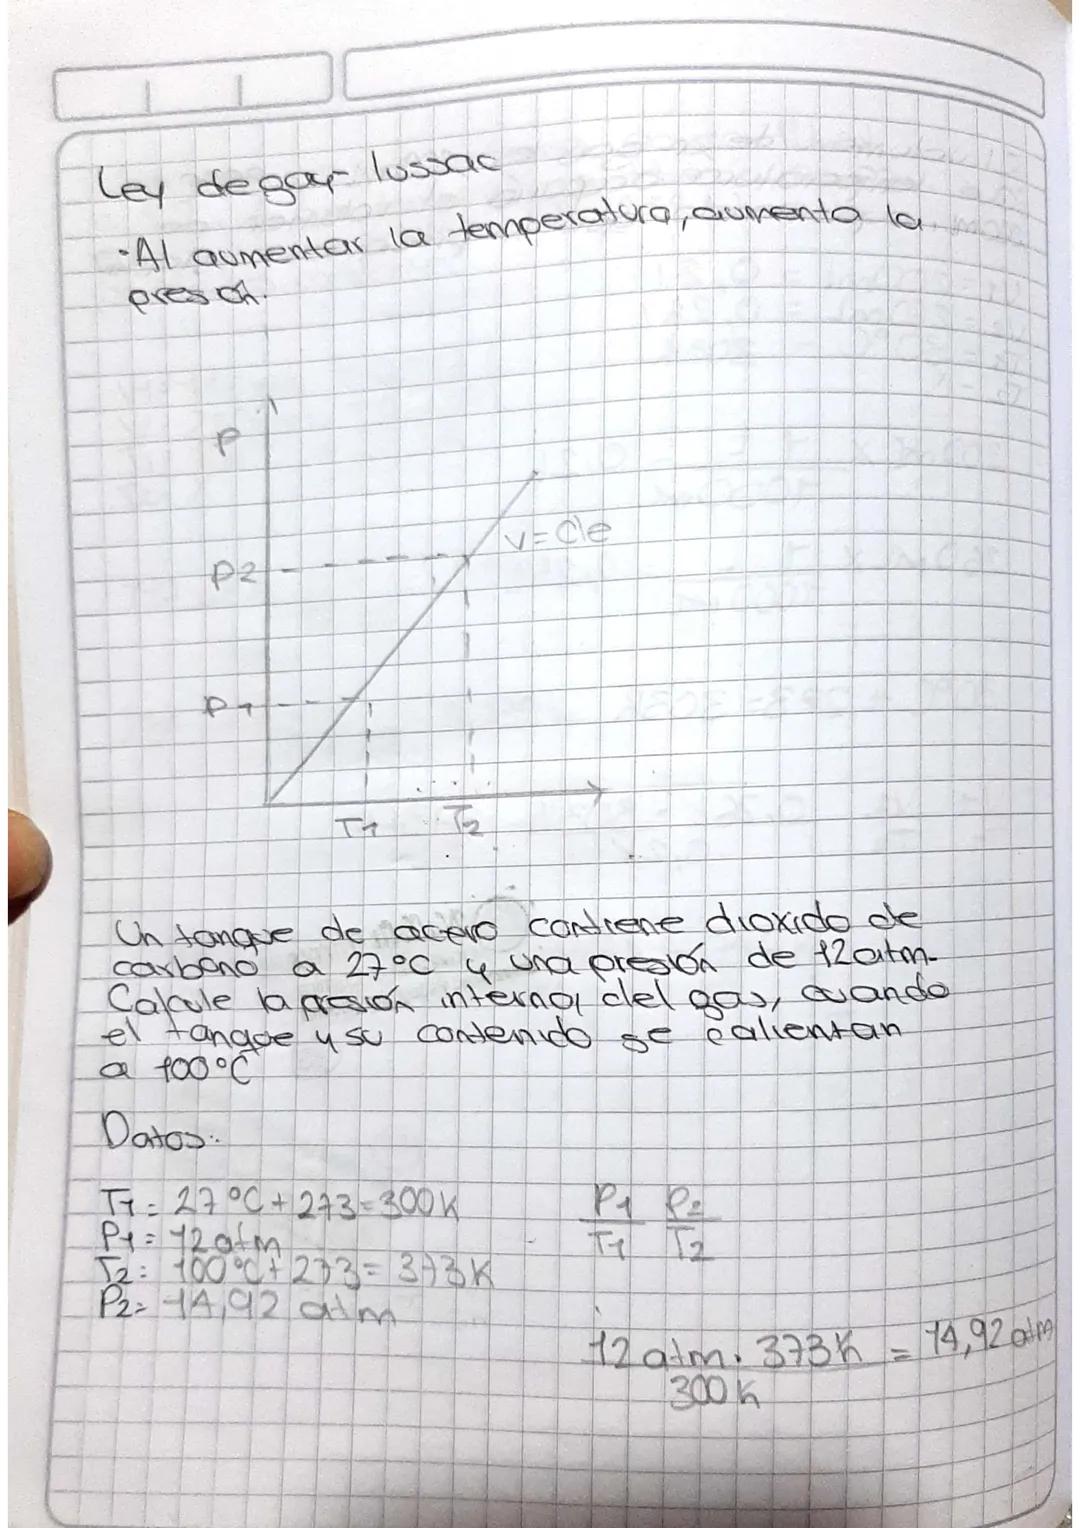 Ley de gay-lussac
• Al aumentar la temperatura, aumenta la
presión.
P
V=cte
P2
P1
T1 T2
Un tanque de acero contiene dioxido de
carbono a 27°C y una presión de 12atm.
Calcule la presión interna, del gas, cuando
el tanque y su contenido se calientan
a 100°C
Datos:
T1 = 27°C + 273 = 300K
P1 = 12 atm
T2 = 100°C + 273 = 373K
P2 = 14,92 atm
P1 P2
T1 T2
12 atm. 373K = 14,92 atm
300K